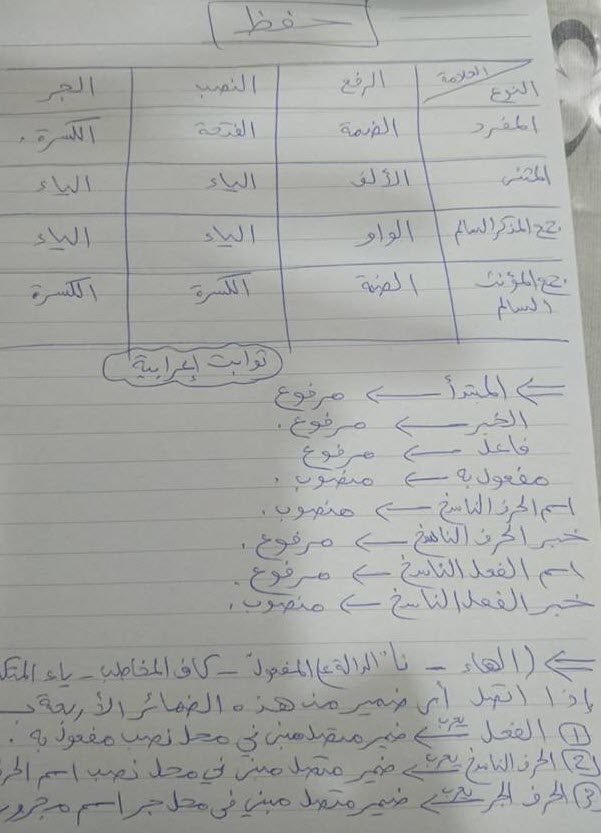 حفظ
العلامة النوع الرفع النصب الجر
المفرد الضمة الفتحة الكسرة .
المثنى الألف الياء الياء
جمع المذكر السالم الواو الياء الياء
جمع المؤنث السالم الضمة الكسرة الكسرة
ثوابت إعرابية
⇐ المبتدأ ← مرفوع
الخبر ← مرفوع .
فاعل ← مرفوع
مفعول به ← منصوب .
اسم الحرف الناسخ ← منصوب .
خبر الحرف الناسخ ← مرفوع .
اسم الفعل الناسخ ← مرفوع .
خبر الفعل الناسخ ← منصوب .
⇐ (الهاء - نا "الدالة على المفعول" - كاف المخاطب - ياء
إذا اتصل أي ضمير من هذه الضمائر الأربعة بـ
① الفعل يعرب ⇐ ضمير متصل مبني في محل نصب مفعول به .
② الحرف الناسخ يعرب ⇐ ضمير متصل مبني في محل نصب اسم
③ الحرف الجر يعرب ⇐ ضمير متصل مبني في محل جر اسم